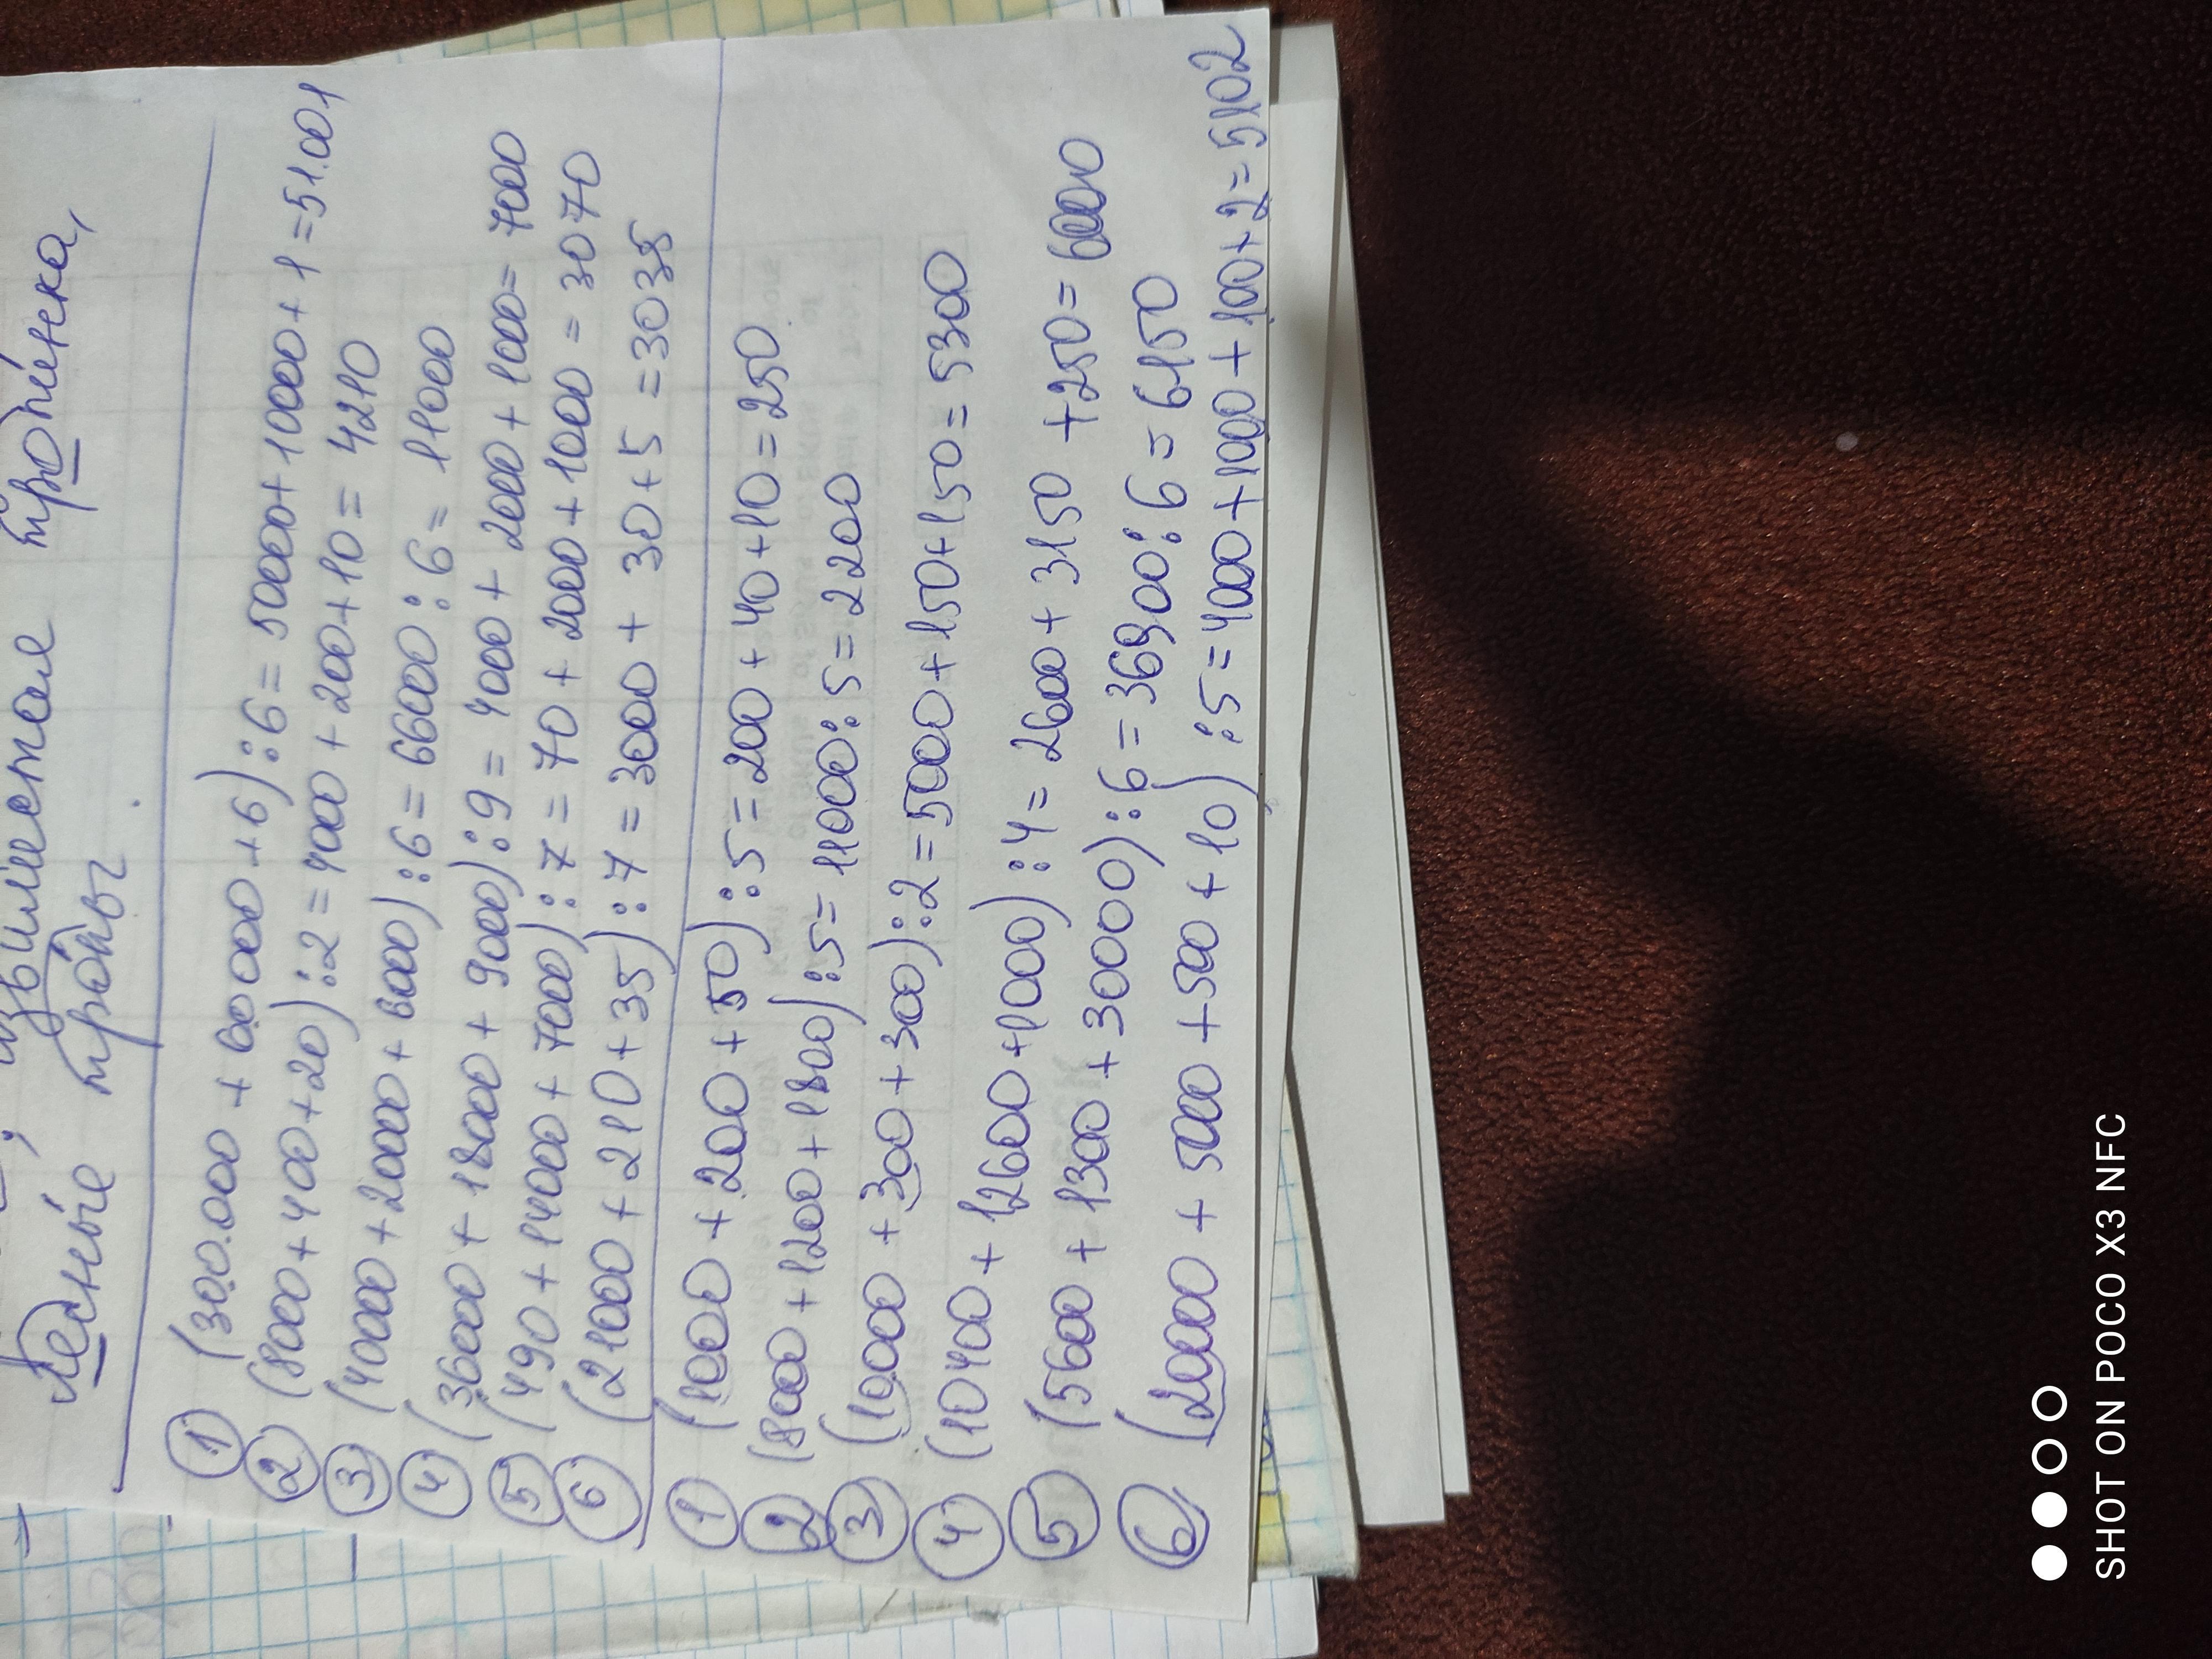 извилистая тропинка,
Лесные тропы.
① (300.000 + 6.0000 + 6) : 6 = 50000 + 10000 + 1 = 51.001
② (8000 + 400 + 20) : 2 = 4000 + 200 + 10 = 4210
③ (40000 + 20000 + 6000) : 6 = 66000 : 6 = 11000
④ (36000 + 18000 + 9000) : 9 = 4000 + 2000 + 1000 = 7000
⑤ (490 + 14000 + 7000) : 7 = 70 + 2000 + 1000 = 3070
⑥ (21000 + 210 + 35) : 7 = 3000 + 30 + 5 = 3035
① (1000 + 200 + 50) : 5 = 200 + 40 + 10 = 250
② (8000 + 1200 + 1800) : 5 = 11000 : 5 = 2200
③ (10000 + 300 + 300) : 2 = 5000 + 150 + 150 = 5300
④ (10400 + 12600 + 1000) : 4 = 2600 + 3150 + 250 = 6000
⑤ (5600 + 1300 + 30000) : 6 = 36900 : 6 = 6150
⑥ (20000 + 5000 + 500 + 10) : 5 = 4000 + 1000 + 100 + 2 = 5102
SHOT ON POCO X3 NFC